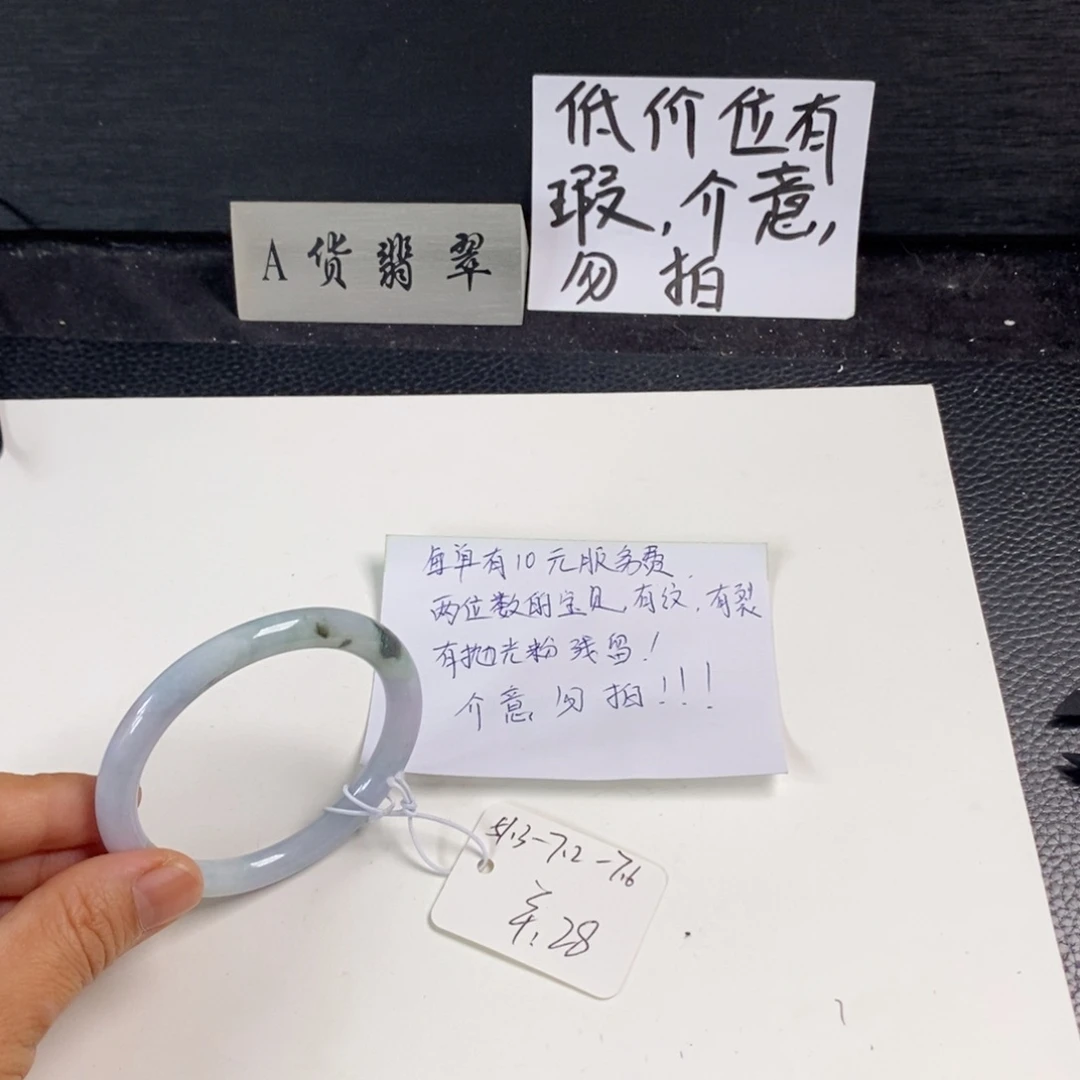 低价位有
瑕,介意,
勿拍
A货翡翠
每单有10元服务费
两位数的宝贝,有纹,有裂
有抛光粉残留!
介意勿拍!!!
51.3-7.2-7.6
28